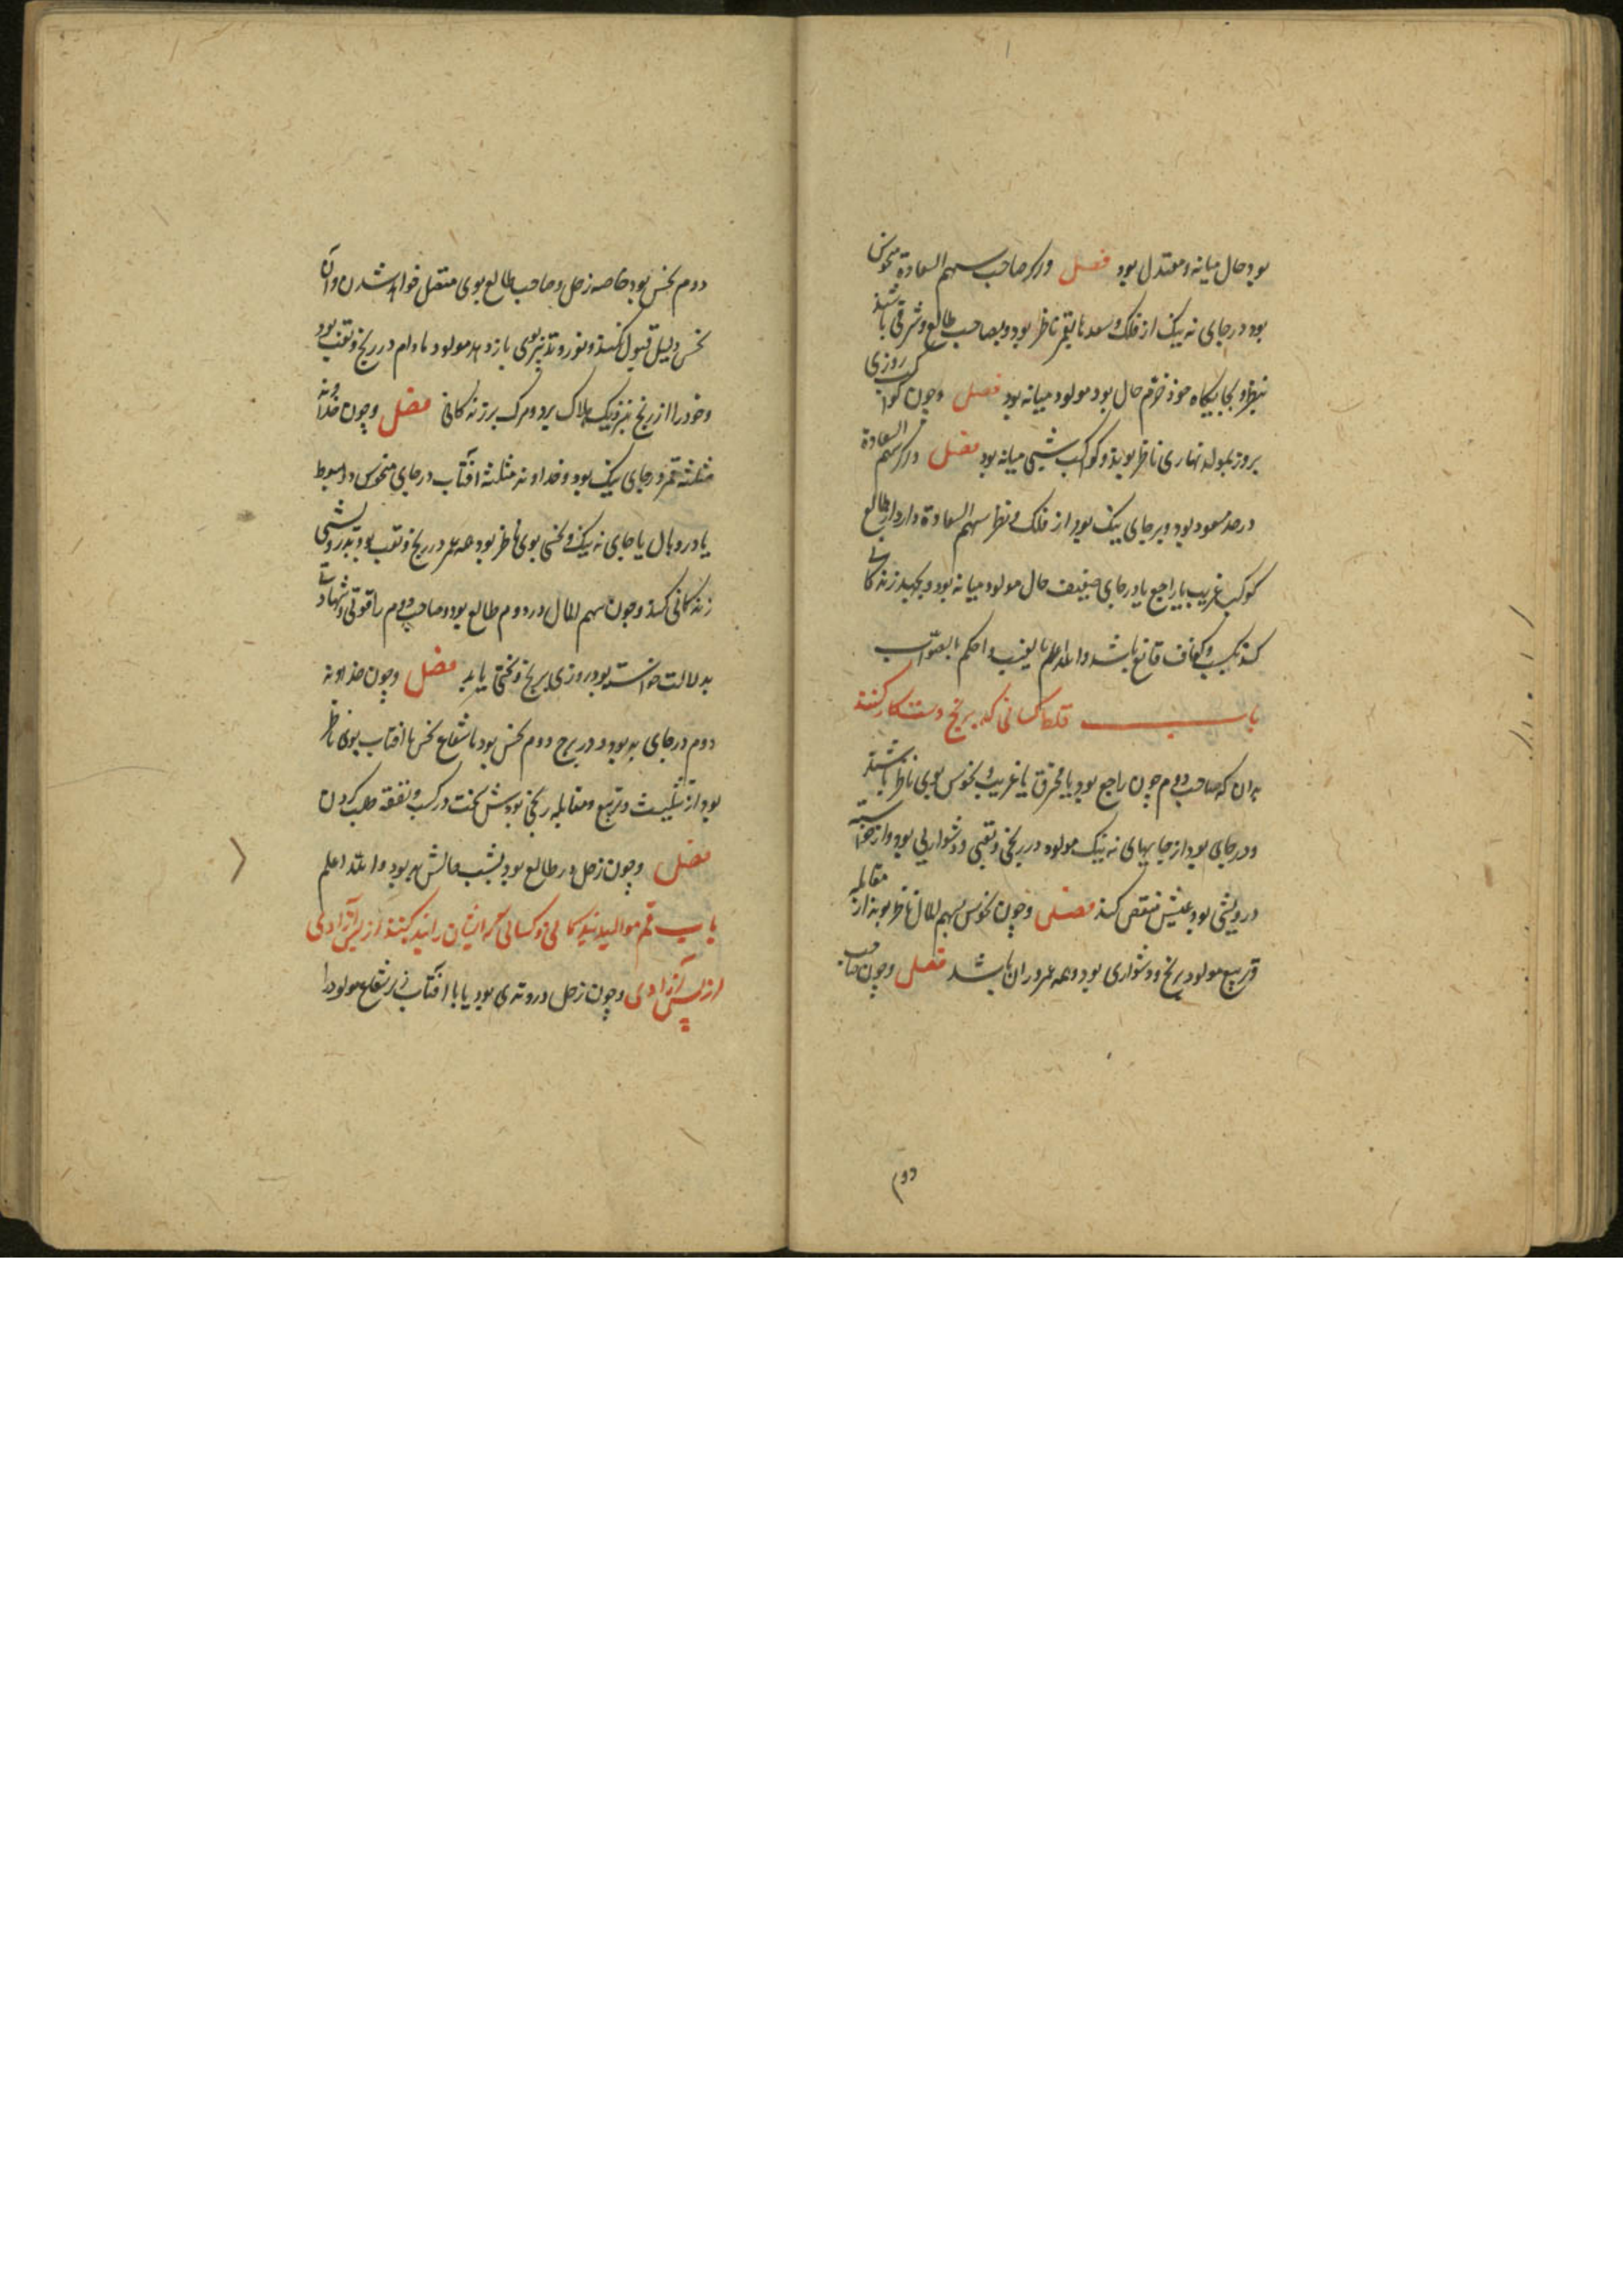 بود حال میانه و معتدل بود فصل و اگر صاحب سهم السعادة منحوس
بود در جای نه نیک از فلک و سعدها بقمر ناظر بود و بصاحب طالع و شرقی باشند
و بجایگاه خوذ خرم حال بود مولود میانه بود فصل و چون کواکب روزی
بروز بمولد نهاری ناظر بوند و کواکب شبی میانه بود فصل و اگر سهم السعادة
در حد مسعود بود و بر جای نیک بود از فلک و نظر سهم السعادة دارد از طالع
کوکب غریب یا راجع یا در جای ضعیف حال مولود میانه بود و بجهد زندکانی
کند بکسب و کفاف قانع باشد والله اعلم بالغیب واحکم بالصواب
باب کسانی که برنج و ستکار کنند
بدان که صاحب دوم چون راجع بود یا محترق یا غریب و نحوس بوی ناظر باشند
و در جای بود از جایهای نه نیک مولود در رنجی و تعبی و دشواریی بود و از خواسته
درویشی بود عیش منغص کند فصل و چون نحوس بسهم المال ناظر بوند از مقابله
و تربیع مولود برنج و دشواری بود و همه عمر در آن باشد فصل و چون صاحب
دوم
دوم نحس بود خاصه زحل و صاحب طالع بوی متصل خواهد شدن و آن
نحس دلیل قبول نکند و نور و تدبیر بوی باز دهد مولود مادام در رنج و تعب بود
و خود را از رنج بنزدیک هلاک برد و مرک بر زندکانی فصل و چون خداوند
مثلثه قمر در جای نیک بود و خداوند مثلثه آفتاب در جای منحوس و هبوط
یا در وبال یا جای نه نیک و نحسی بوی ناظر بود همه عمر در رنج و تعب بود و بدرویشی
زندکانی کند و چون سهم المال در دوم طالع بود و صاحب دوم را قوتی و شهادتی
بدلالت خواسته بود روزی برنج و سختی یابد فصل و چون خداوند
دوم در جای بد بود و در برج دوم نحس بود یا شعاع نحس با افتاب بوی ناظر
بود از تثلیث و تربیع و مقابله رنجی بودش سخت در کسب و نفقه طلب کردن
فصل و چون زحل در طالع بود بشب حالش بد بود والله اعلم
باب موالید بندکانی و کسانی که ایشان را بند کنند از پس آزادی
از پس آزادی و چون زحل در وتدی بود یا با افتاب شعاع مولود را